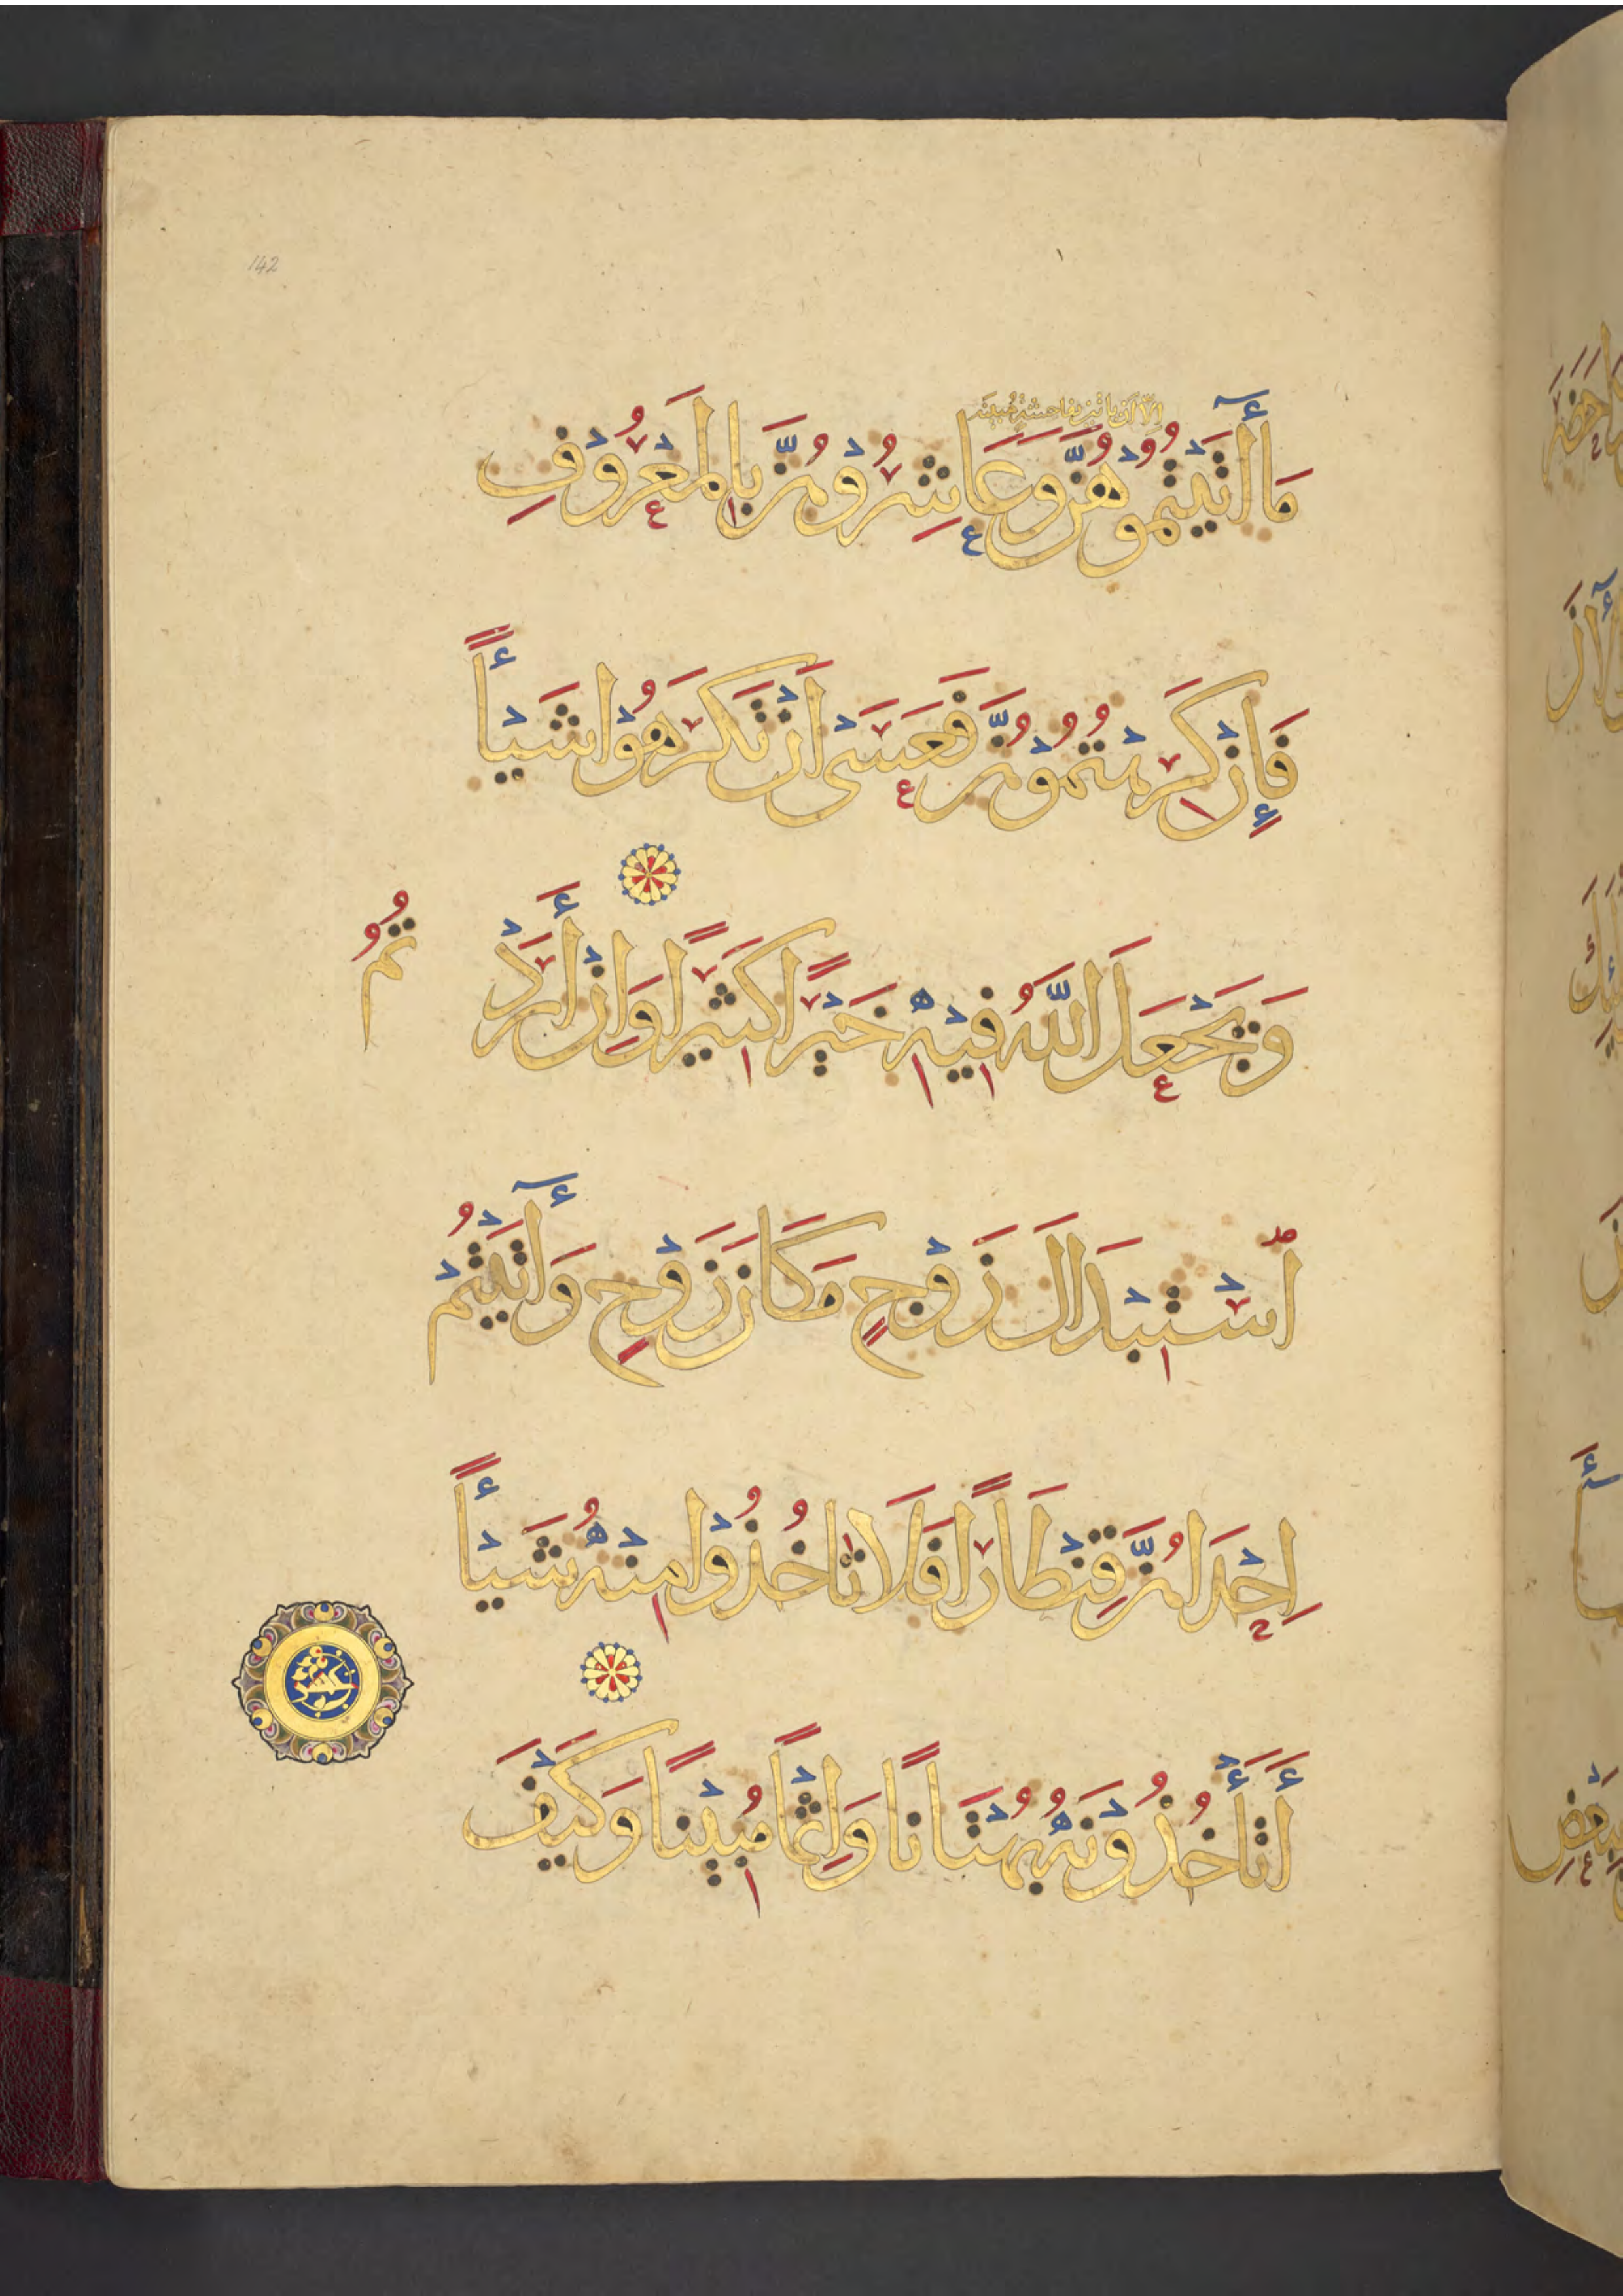 142
إلا أن يأتين بفاحشة مبينة
مَا أَتَيْتُمُوهُنَّ وَعَاشِرُوهُنَّ بِالْمَعْرُوفِ
فَإِنْ كَرِهْتُمُوهُنَّ فَعَسَى أَنْ تَكْرَهُوا شَيْأً
وَيَجْعَلَ اللَّهُ فِيهِ خَيْرًا كَثِيرًا وَإِنْ أَرَدْ
تُمُ
اسْتِبْدَالَ زَوْجٍ مَكَانَ زَوْجٍ وَأَتَيْتُمْ
إِحْدَاهُنَّ قِنْطَارًا فَلَا تَاخُذُوا مِنْهُ شَيْأً
أَتَأْخُذُونَهُ بُهْتَانًا وَإِثْمًا مُبِينًا وَكَيْفَ